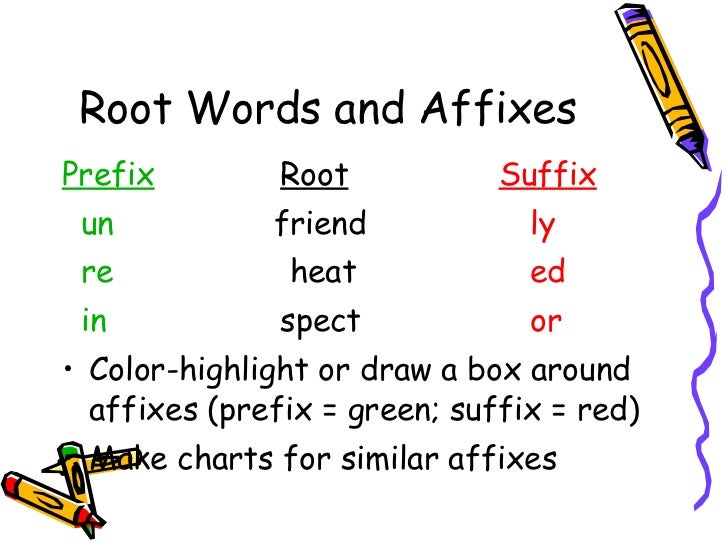 Root Words and Affixes
Prefix Root Suffix
un friend ly
re heat ed
in spect or
• Color-highlight or draw a box around
affixes (prefix = green; suffix = red)
• Make charts for similar affixes